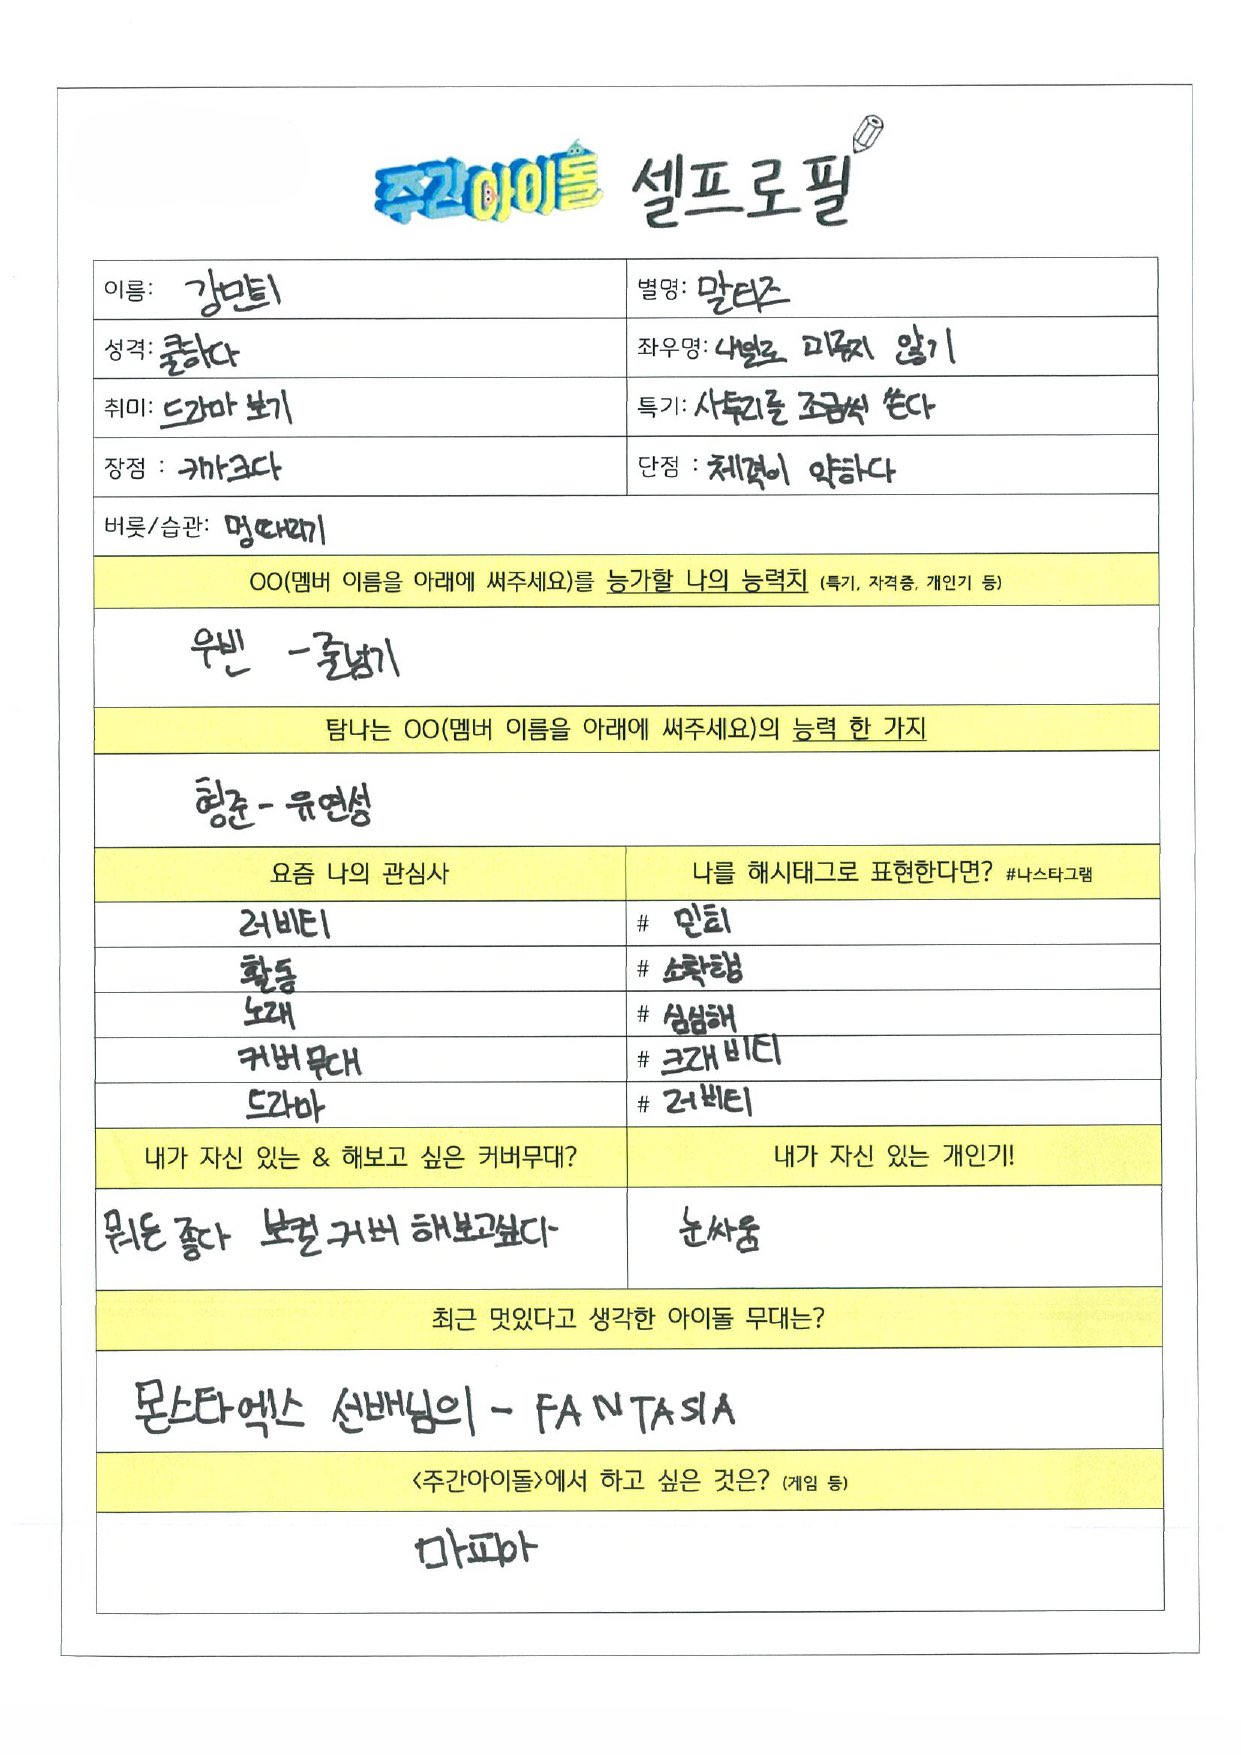 주간아이돌 셀프로필
이름: 강민희 별명: 말티즈
성격: 쿨하다 좌우명: 내일로 미루지 않기
취미: 드라마 보기 특기: 사투리를 조금씩 쓴다
장점 : 키가크다 단점 : 체력이 약하다
버릇/습관: 멍때리기
OO(멤버 이름을 아래에 써주세요)를 능가할 나의 능력치 (특기, 자격증, 개인기 등)
우빈 - 줄넘기
탐나는 OO(멤버 이름을 아래에 써주세요)의 능력 한 가지
형준 - 유연성
요즘 나의 관심사 나를 해시태그로 표현한다면? #나스타그램
러비티 # 민희
활동 # 소확행
노래 # 심심해
커버무대 # 크래비티
드라마 # 러비티
내가 자신 있는 & 해보고 싶은 커버무대? 내가 자신 있는 개인기!
뭐든 좋다 보컬 커버 해보고싶다 눈싸움
최근 멋있다고 생각한 아이돌 무대는?
몬스타엑스 선배님의 - FANTASIA
<주간아이돌>에서 하고 싶은 것은? (게임 등)
마피아